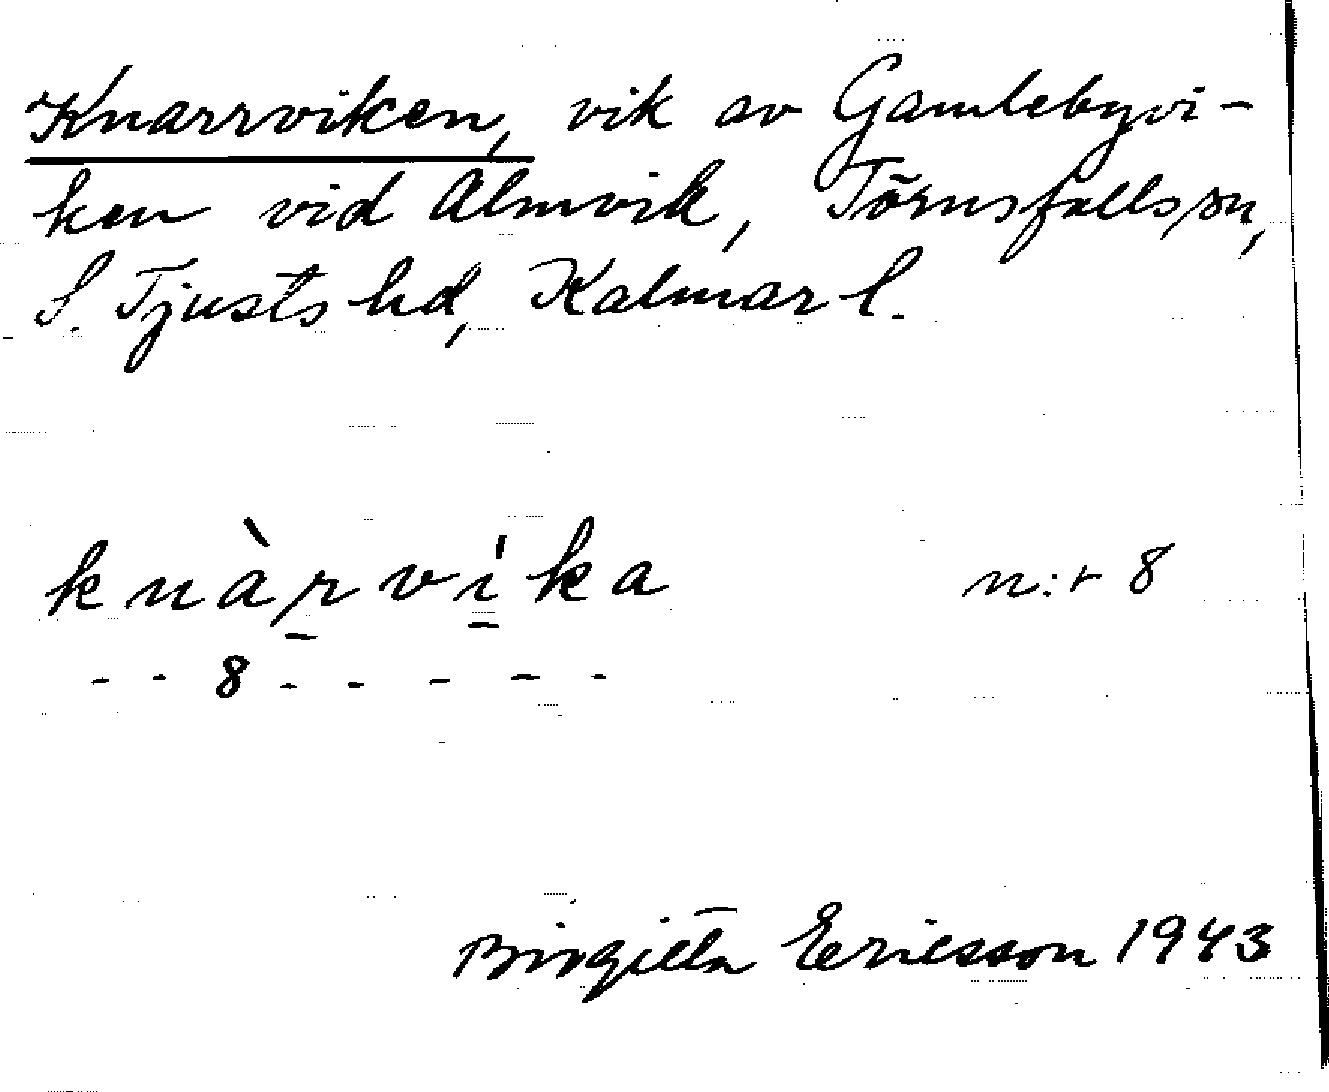 Knarrviken, vik av Gamlebyvi-
ken vid Almvik, Törnsfalls sn,
S. Tjusts hd, Kalmar l.
knàrvíka n:r 8
- - 8 - - - - -
Birgitta Ericsson 1943